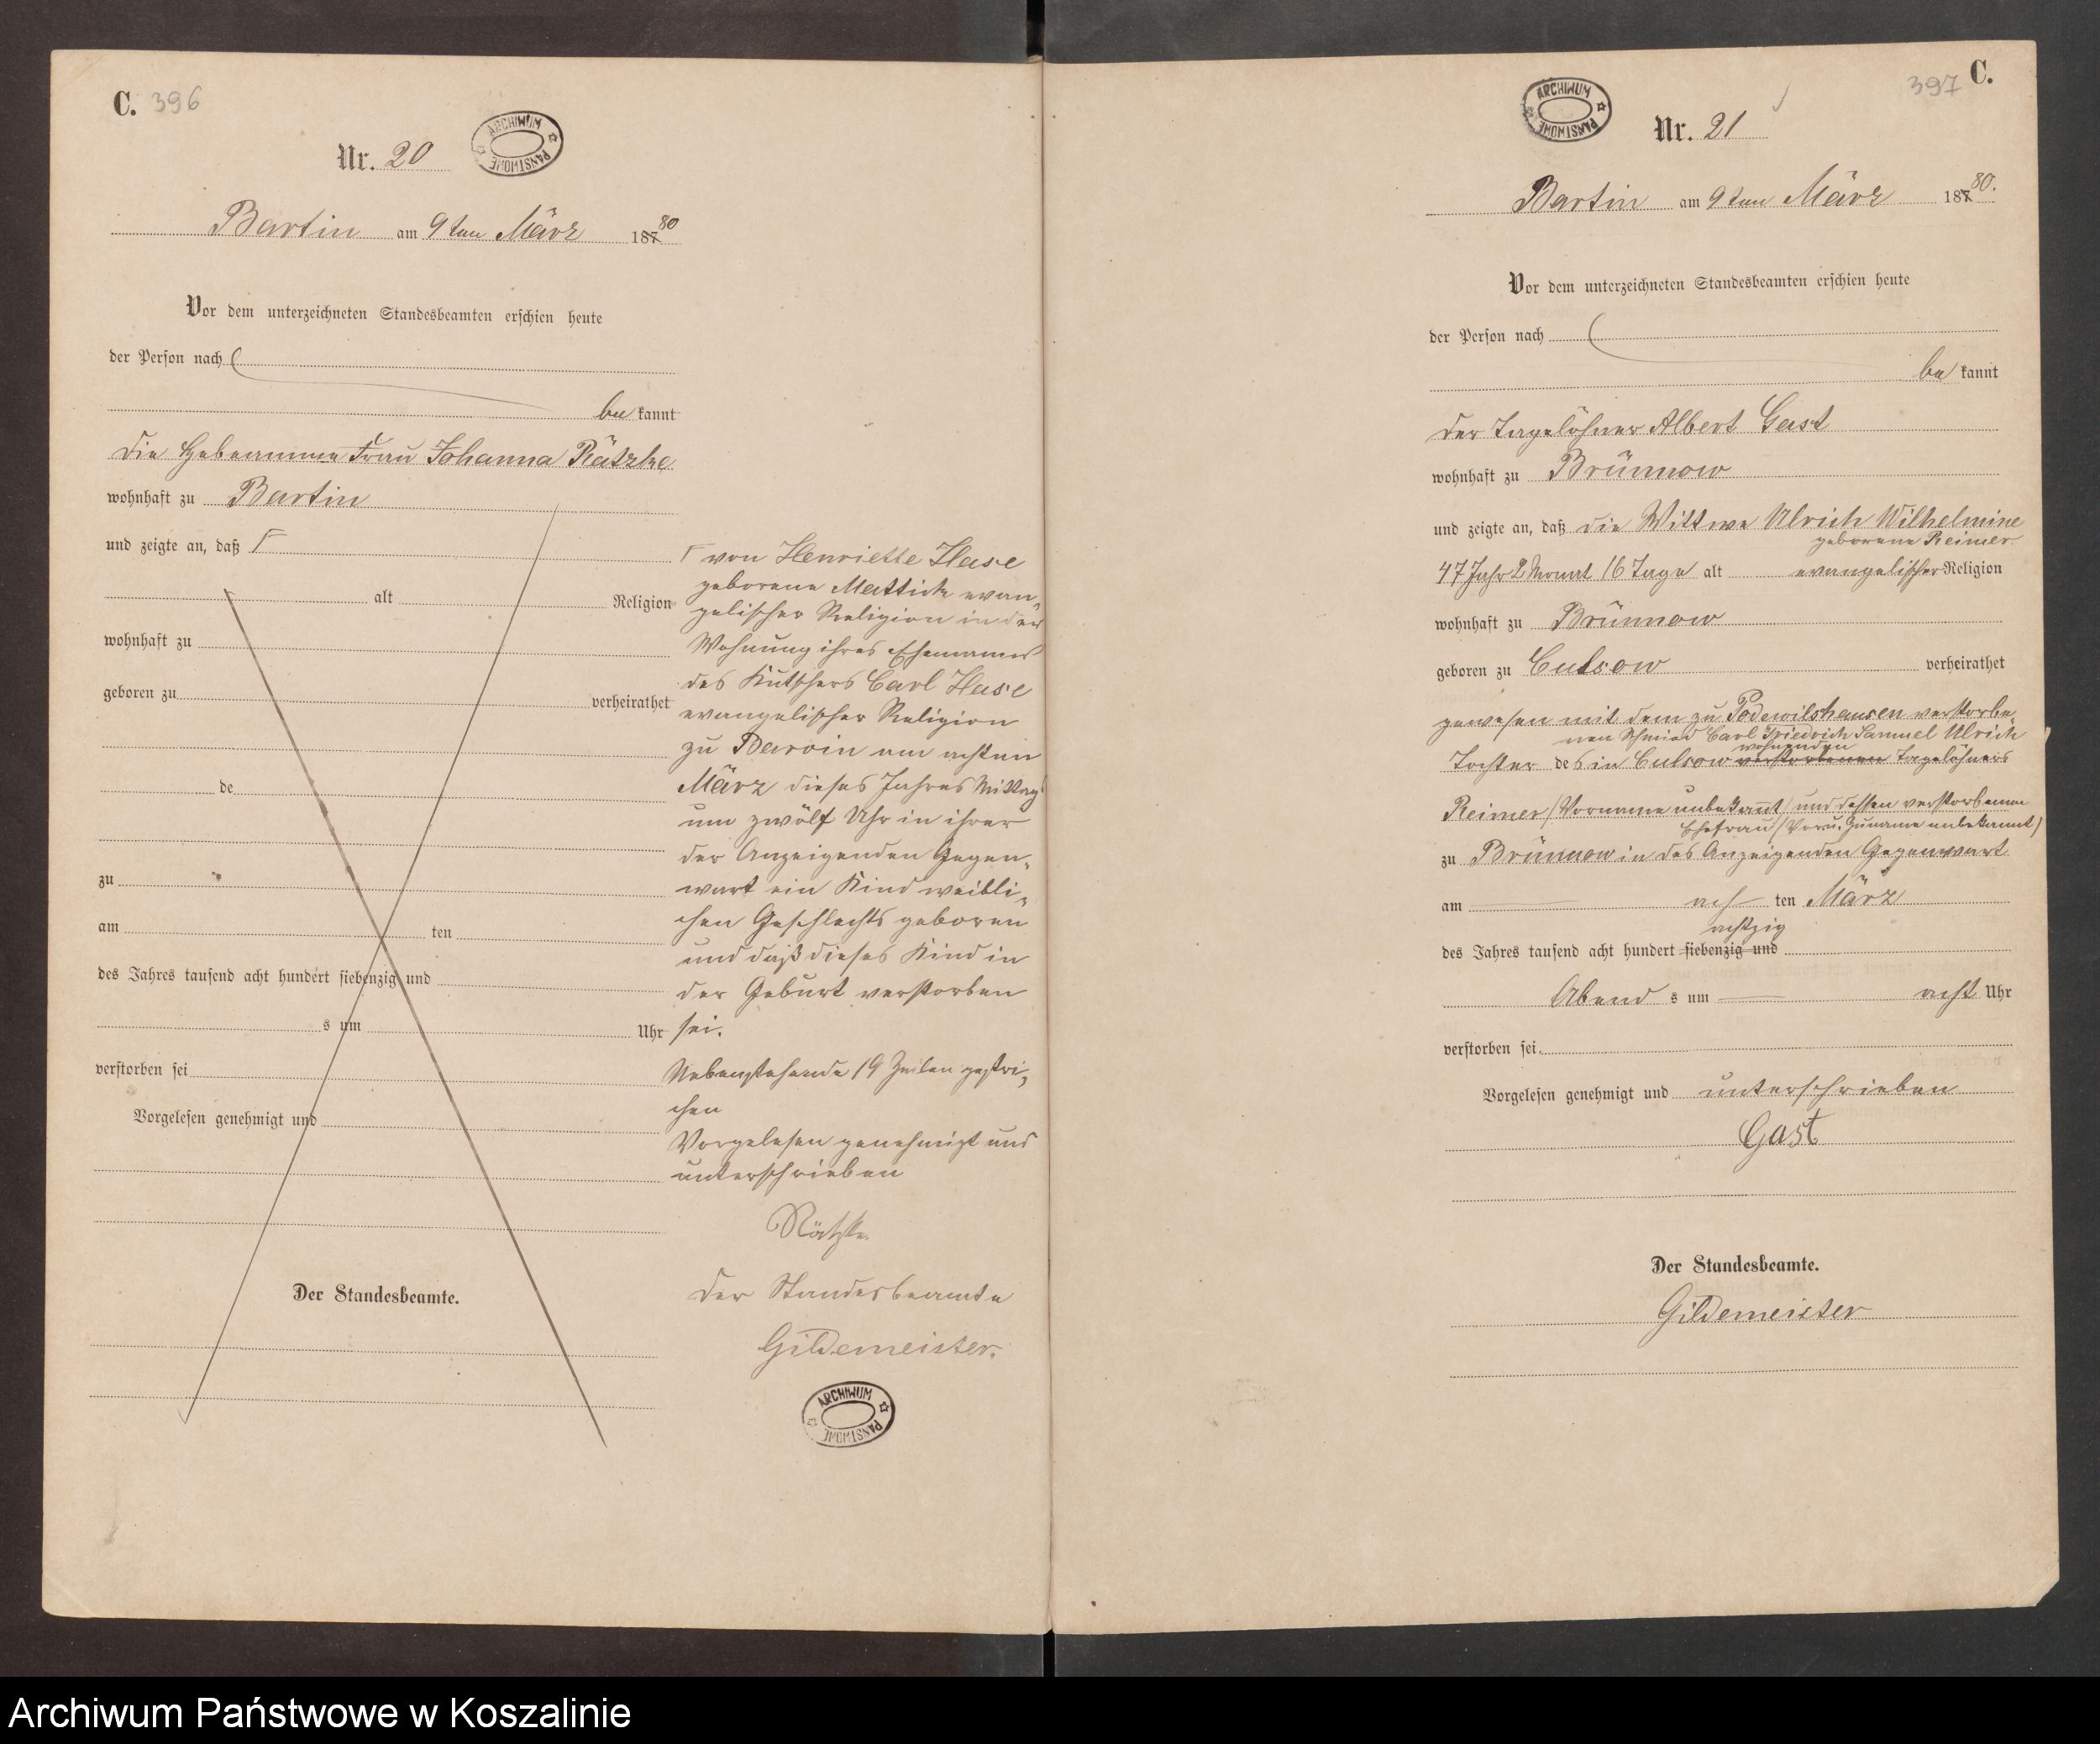 C. 396
Nr. 20
ARCHIWUM PAŃSTWOWE
Bartin am 9ten März 18780
Vor dem unterzeichneten Standesbeamten erschien heute
der Person nach
be kannt
die Hebeamme Frau Johanna Rätzke
wohnhaft zu Bartin
und zeigte an, daß Γ
alt Religion
wohnhaft zu
geboren zu verheirathet
de
zu
am ten
des Jahres tausend acht hundert siebenzig und
s um Uhr
verstorben sei
Vorgelesen genehmigt und
Der Standesbeamte.
Γ von Henriette Hase
geborene Mattick evan„
gelischer Religion in der
Wohnung ihres Ehemannes
des Kutschers Carl Hase
evangelischer Religion
zu Barvin am achten
März dieses Jahres Mittag
um zwölf Uhr in ihrer
der Anzeigenden Gegen„
wart ein Kind weibli„
chen Geschlechts geboren
und daß dieses Kind in
der Geburt verstorben
sei.
Nebenstehende 19 Zeilen gestri„
chen
Vorgelesen genehmigt und
unterschrieben
Rätzke.
Der Standesbeamte
Gildemeister.
ARCHIWUM PAŃSTWOWE
397 C.
ARCHIWUM PAŃSTWOWE
Nr. 21
Bartin am 9ten März 18780.
Vor dem unterzeichneten Standesbeamten erschien heute
der Person nach
be kannt
der Tagelöhner Albert Gast
wohnhaft zu Brünnow
und zeigte an, daß die Wittwe Ulrich Wilhelmine
geborene Reimer
47 Jahr 2 Monat 16 Tage alt evangelischer Religion
wohnhaft zu Brünnow
geboren zu Culsow verheirathet
gewesen mit dem zu Podewilshausen verstorbe„
nen Schmied Carl Friedrich Samuel Ulrich
wohnenden
Tochter des in Culsow verstorbenen Tagelöhners
Reimer (Vorname unbekannt) und dessen verstorbenen
Ehefrau (Vor u. Zuname unbekannt)
zu Brünnow in des Anzeigenden Gegenwart
am ach ten März
achtzig
des Jahres tausend acht hundert siebenzig und
Abend s um acht Uhr
verstorben sei.
Vorgelesen genehmigt und unterschrieben
Gast
Der Standesbeamte.
Gildemeister
Archiwum Państwowe w Koszalinie